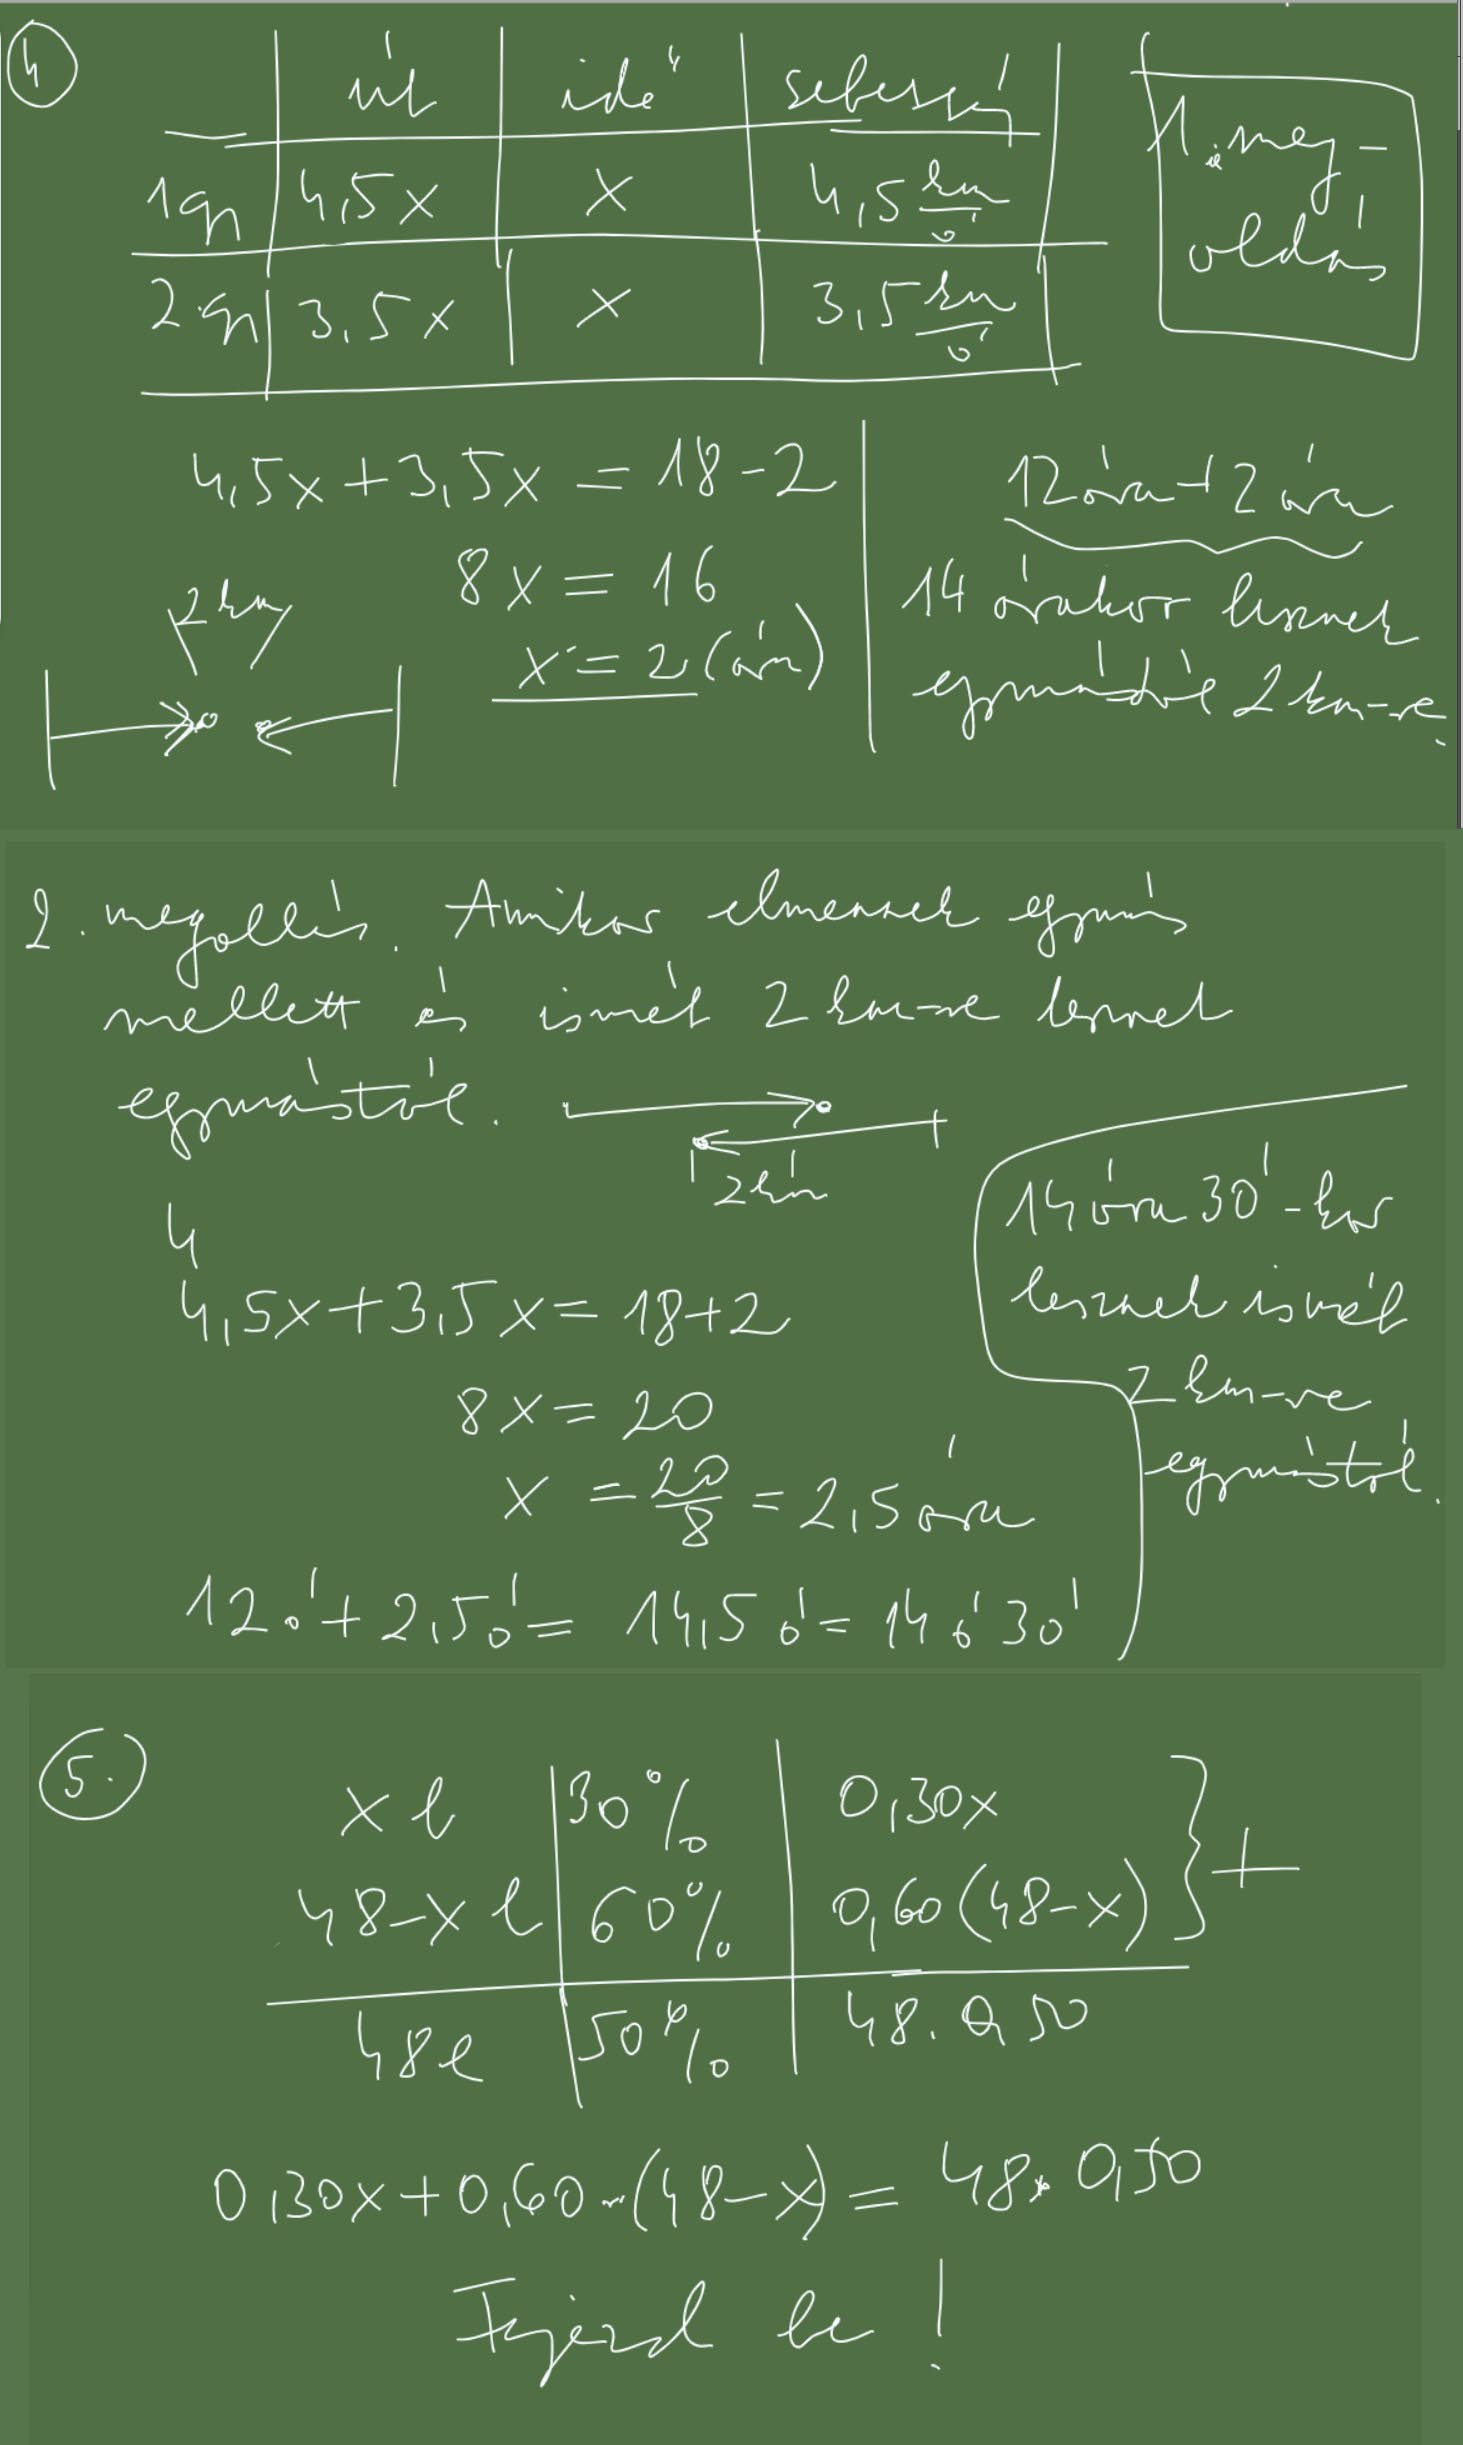 4
út idő sebesség
1. meg-
oldás
1 gy 4,5x x 4,5 km/ó
2. gy 3,5x x 3,5 km/ó
4,5x + 3,5x = 18 - 2
8x = 16
x = 2 (óra)
2 km
12 óra + 2 óra
14 órakor lesznek
egymástól 2 km-re.
2. megoldás. Amikor elmennek egymás
mellett és ismét 2 km-re lesznek
egymástól.
2 km
4
4,5x + 3,5x = 18 + 2
8x = 20
x = 20/8 = 2,5 óra
12 ó + 2,5 ó = 14,5 ó = 14 ó 30'
14 óra 30'-kor
lesznek ismét
2 km-re
egymástól.
5.
x l 30% 0,30x
48-x l 60% 0,60(48-x) } +
48 l 50% 48·0,50
0,30x + 0,60·(48-x) = 48·0,50
Fejezd be!